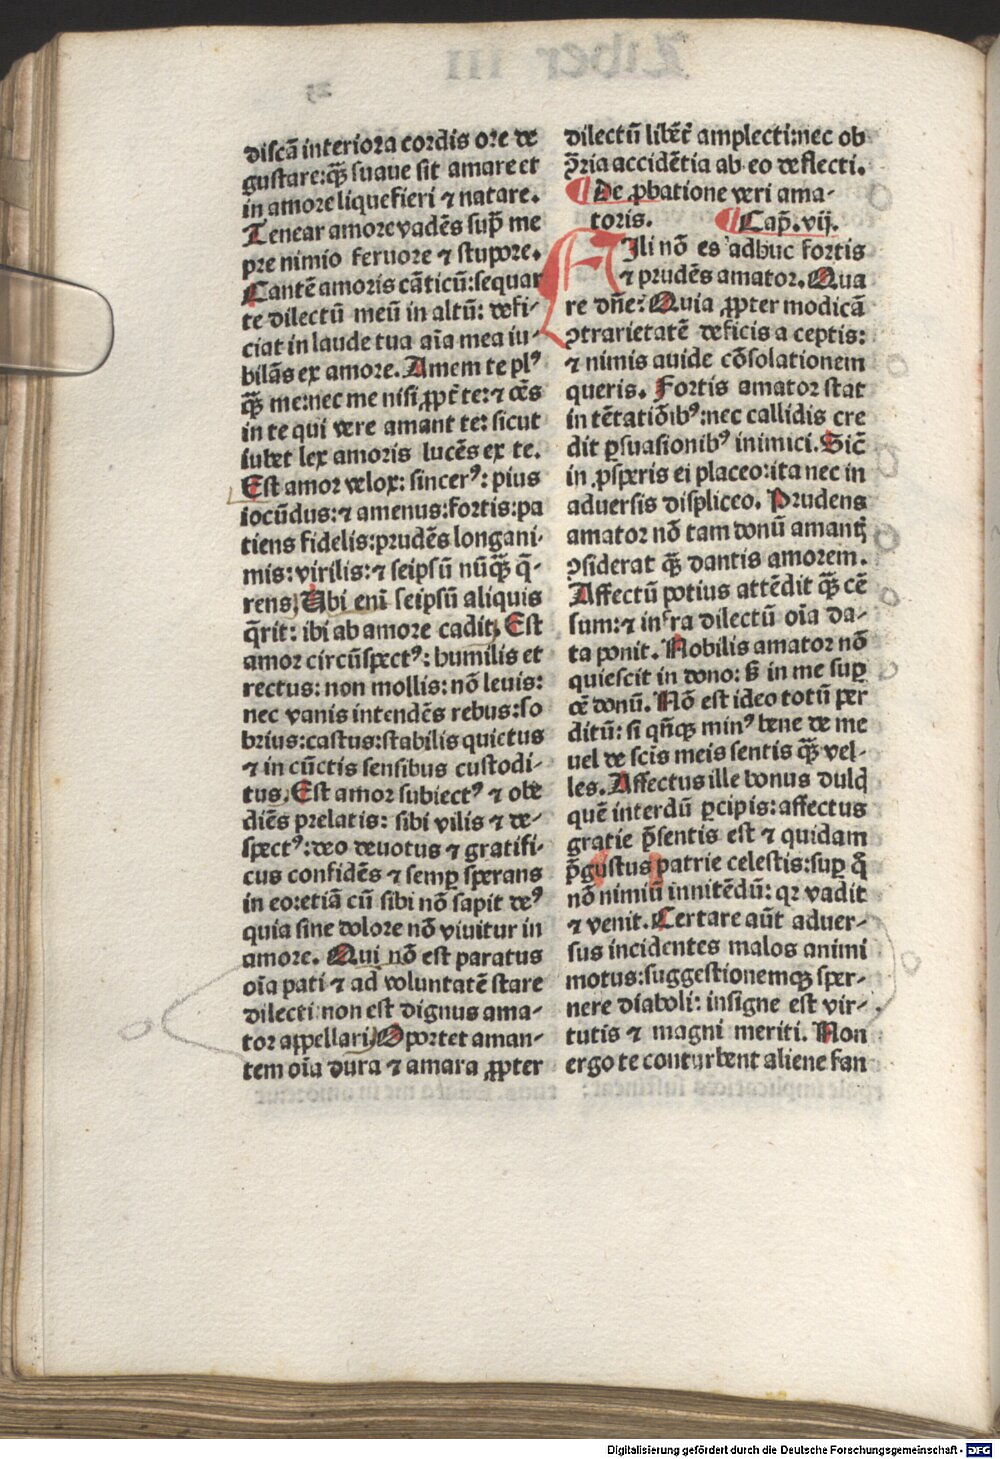 discā interiora cordis ore de
gustare: qͣꝫ suaue sit amare et
in amore liquefieri ⁊ natare.
Tenear amore vadēs sup̄ me
pre nimio feruore ⁊ stupore.
Cantē amoris cāticū: sequar
te dilectū meū in altū: defi-
ciat in laude tua aīa mea iu-
bilās ex amore. Amem te plꝰ
qͣꝫ me: nec me nisi ꝓpt̄ te: ⁊ oēs
in te qui vere amant te: sicut
iubet lex amoris lucēs ex te.
Est amor velox: sincerꝰ: pius
iocūdus: ⁊ amenus: fortis: pa
tiens fidelis: prudēs longani-
mis: virilis: ⁊ seipsū nūqͣꝫ q̄-
rens. Ubi enī seipsū aliquis
q̄rit: ibi ab amore cadit. Est
amor circūspectꝰ: humilis et
rectus: non mollis: nō leuis:
nec vanis intendēs rebus: so
brius: castus: stabilis quietus
⁊ in cūctis sensibus custodi-
tus. Est amor subiectꝰ ⁊ obe
diēs prelatis: sibi vilis ⁊ de-
spectꝰ: deo deuotus ⁊ gratifi-
cus confidēs ⁊ semꝑ sperans
in eo: etiā cū sibi nō sapit deꝰ
quia sine dolore nō viuitur in
amore. Qui nō est paratus
oīa pati ⁊ ad voluntatē stare
dilecti non est dignus ama-
tor appellari. Oportet aman-
tem oīa dura ⁊ amara ꝓpter
dilectū libēt̄ amplecti: nec ob
ꝯ̄ria accidētia ab eo deflecti.
¶ De ꝓbatione veri ama-
toris. ¶ Cap̄. vij.
FIli nō es adhuc fortis
⁊ prudēs amator. Qua
re dn̄e? Quia ꝓpter modicā
ꝯtrarietatē deficis a ceptis:
⁊ nimis auide cōsolationem
queris. Fortis amator stat
in tētatiōibꝰ: nec callidis cre
dit ꝑsuasionibꝰ inimici. Sic̄
in ꝓsperis ei placeo: ita nec in
aduersis displiceo. Prudens
amator nō tam donū amantꝭ
ꝯsiderat qͣꝫ dantis amorem.
Affectū potius attēdit qͣꝫ cē
sum: ⁊ infra dilectū oīa da-
ta ponit. Nobilis amator nō
quiescit in dono: sꝫ in me suꝑ
oē donū. Nō est ideo totū per
ditū: si qn̄qꝫ minꝰ bene de me
uel de scīs meis sentis qͣꝫ vel-
les. Affectus ille bonus dulcꝭ
quē interdū ꝑcipis: affectus
gratie p̄sentis est ⁊ quidam
p̄gustus patrie celestis: suꝑ q̄
nō nimiū innitēdū: qꝛ vadit
⁊ venit. Certare aūt aduer-
sus incidentes malos animi
motus: suggestionemqꝫ sper-
nere diaboli: insigne est vir-
tutis ⁊ magni meriti. Non
ergo te conturbent aliene fan
Digitalisierung gefördert durch die Deutsche Forschungsgemeinschaft - DFG